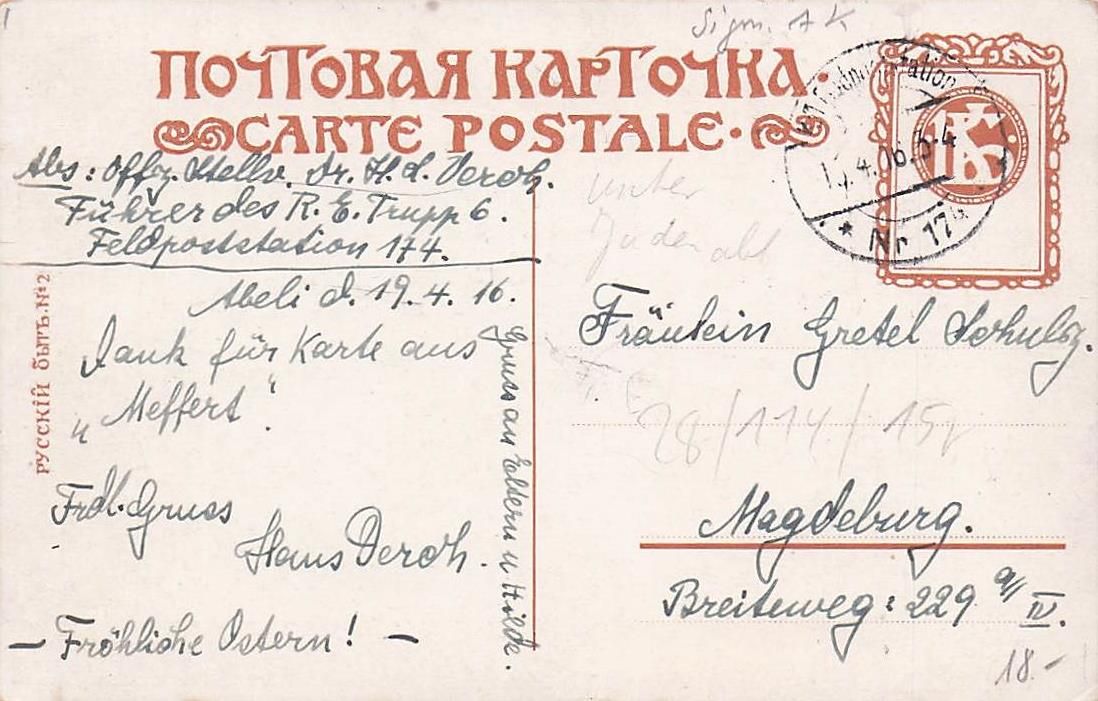 Sign. A K
ПОЧТОВАЯ КАРТОЧКА.
CARTE POSTALE.
Abs: Offz. Stellv. Dr. H. d. Deroh.
Führer des R. E. Trupp 6.
Feldpoststation 174.
Abeli d. 19. 4. 16.
Dank für Karte aus
"Meffert".
Frdl. Gruss
Hans Deroh.
— Fröhliche Ostern! —
Gruss an Eltern u Hilde.
РУССКІЙ БЫТЪ. №2
4. 16. 3-4
* Nr. 174
K
unter
Juden abt
Fräulein Gretel Schulz.
28/114/15
Magdeburg.
Breiteweg: 229 a/IV.
18.-